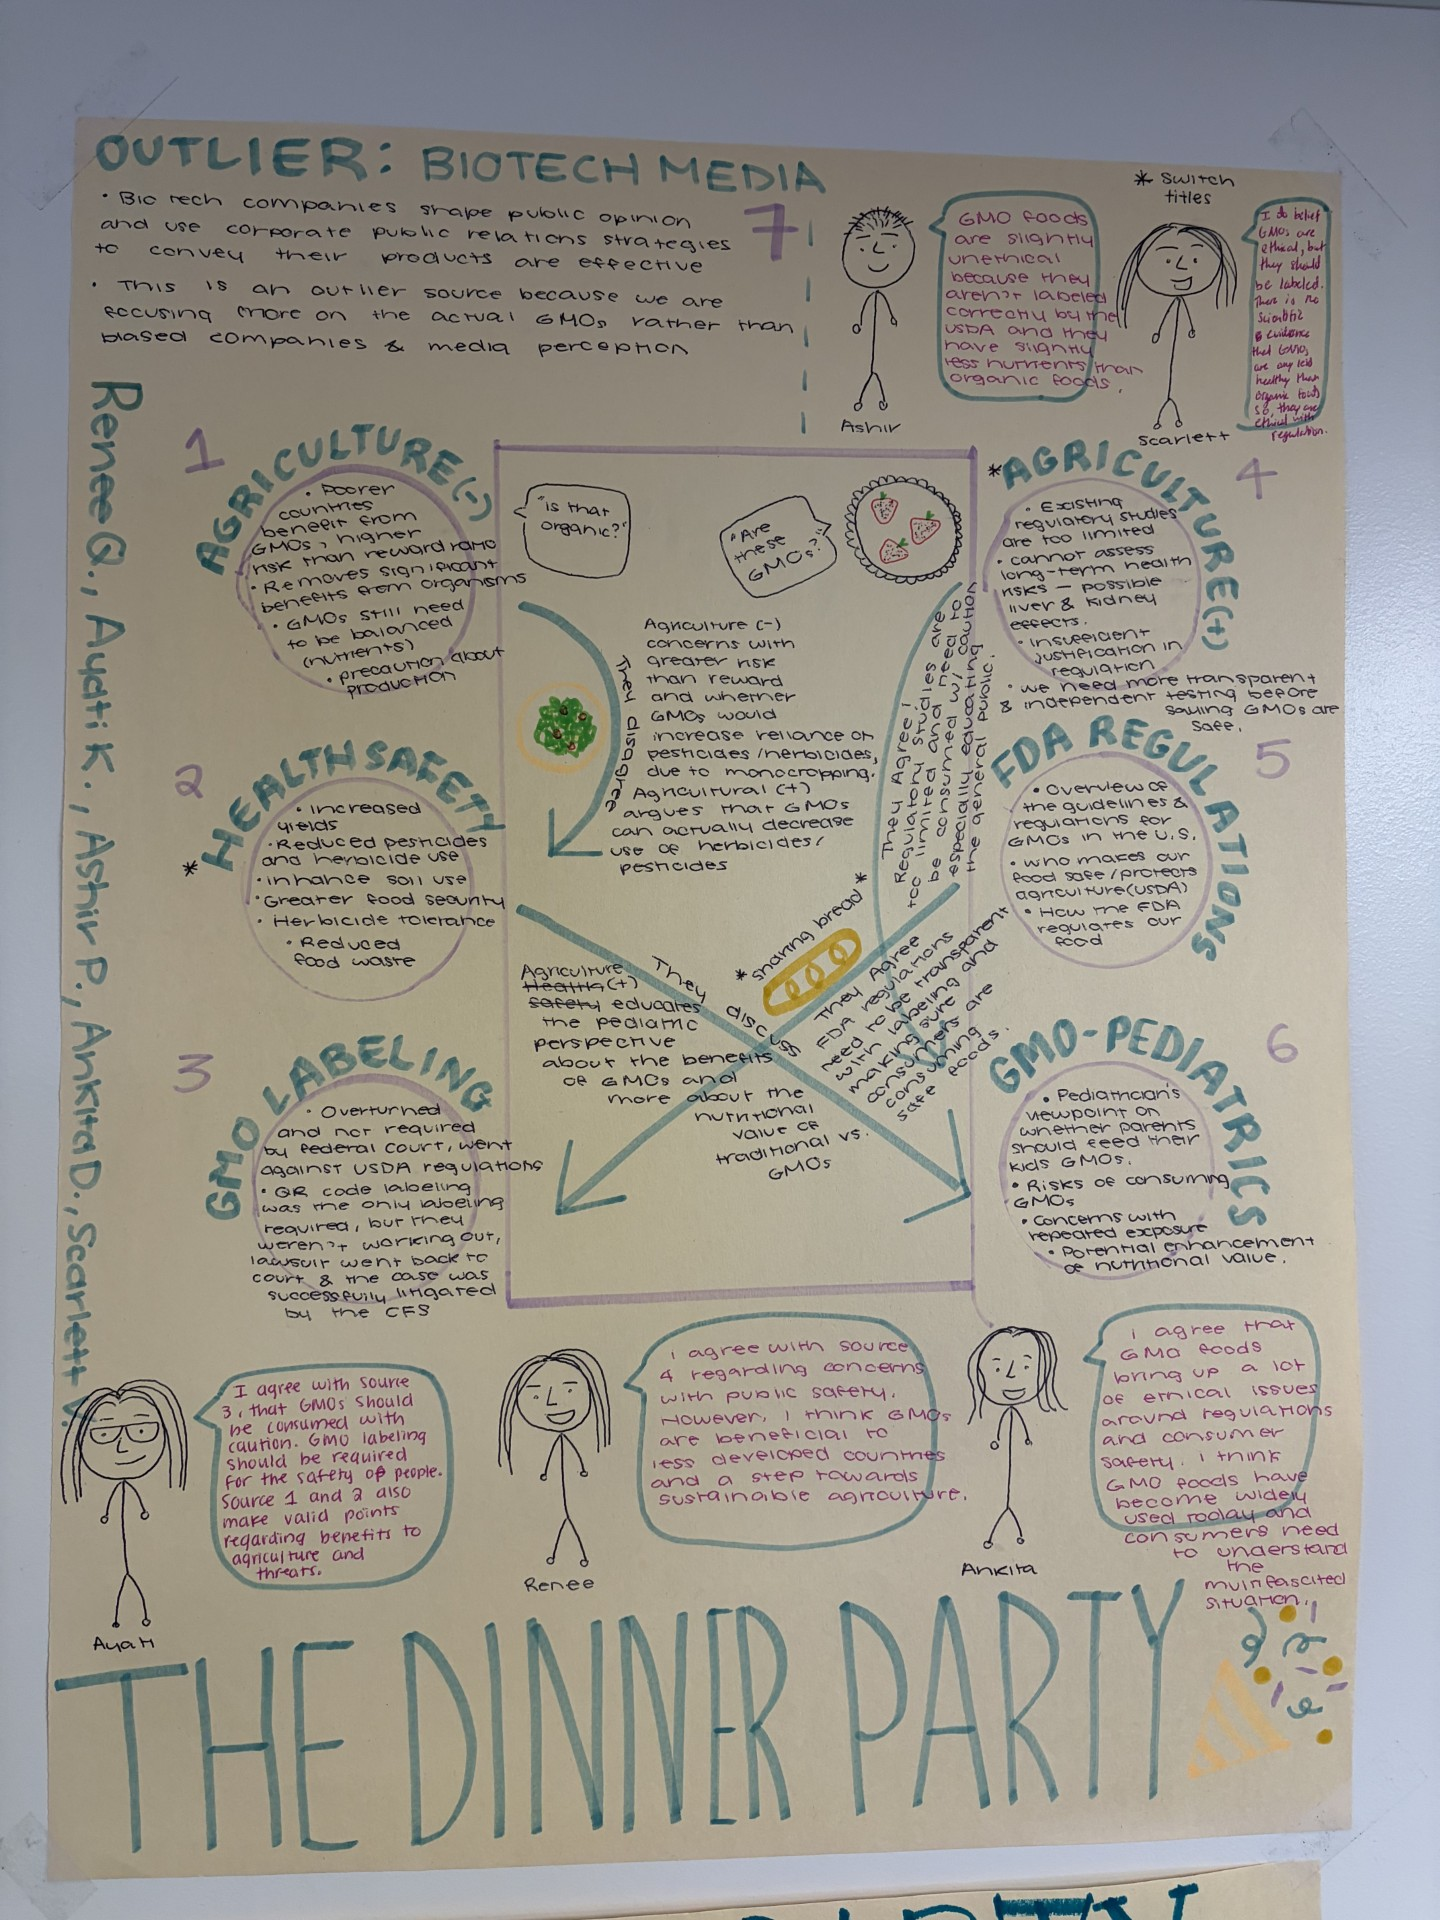 OUTLIER: BIOTECH MEDIA
• Bio tech companies shape public opinion
and use corporate public relations strategies
to convey their products are effective
• This is an outlier source because we are
focusing more on the actual GMOs rather than
biased companies & media perception
7
Ashir
GMO foods
are slightly
unethical
because they
aren't labeled
correctly by the
USDA and they
have slightly
less nutrients than
organic foods.
* Switch
titles
Scarlett
I do belief
GMOs are
ethical, but
they should
be labeled.
There is no
scientific
evidence
that GMOs
are any less
healthy than
organic foods
so, they are
ethical with
regulation.
Renee Q., Ayati K., Ashir P., Ankita D., Scarlett V.
1
AGRICULTURE(-)
• Poorer
countries
benefit from
GMOs, higher
risk than reward ratio
• Removes significant
benefits from organisms
• GMOs still need
to be balanced
(nutrients)
• precaution about
production
2
* HEALTH SAFETY
• increased
yields
• Reduced pesticides
and herbicide use
• inhance soil use
• Greater food security
• Herbicide tolerance
• Reduced
food waste
3
GMO LABELING
• Overturned
and not required
by federal court, went
against USDA regulations
• QR code labeling
was the only labeling
required, but they
weren't working out,
lawsuit went back to
court & the case was
successfully litigated
by the CFS
"is that
organic?"
"Are
these
GMOs?"
They disagree
Agriculture (-)
concerns with
greater risk
than reward
and whether
GMOs would
increase reliance on
pesticides/herbicides,
due to monocropping.
Agricultural (+)
argues that GMOs
can actually decrease
use of herbicides/
pesticides
They Agree!
Regulatory studies are
too limited and need to
be consumed w/ caution
especially educating
the general public.
*sharing bread*
They discuss
Agriculture
Health (+)
safety educates
the pediatric
perspective
about the benefits
of GMOs and
more about the
nutritional
value of
traditional vs.
GMOs
They Agree
FDA regulations
need to be transparent
with labeling and
making sure
consumers are
consuming
safe foods.
4
*AGRICULTURE(+)
• Existing
regulatory studies
are too limited
• cannot assess
long-term health
risks — possible
liver & kidney
effects.
• insufficient
justification in
regulation
• we need more transparent
& independent testing before
saying GMOs are
safe.
5
FDA REGULATIONS
• Overview of
the guidelines &
regulations for
GMOs in the U.S.
• who makes our
food safe/protects
agriculture(USDA)
• How the FDA
regulates our
food
6
GMO-PEDIATRICS
• Pediatrician's
viewpoint on
whether parents
should feed their
kids GMOs.
• Risks of consuming
GMOs
• Concerns with
repeated exposure
• Potential enhancement
of nutritional value.
Ayati
I agree with source
3, that GMOs should
be consumed with
caution. GMO labeling
should be required
for the safety of people.
Source 1 and 2 also
make valid points
regarding benefits to
agriculture and
threats.
Renee
I agree with source
4 regarding concerns
with public safety.
However, I think GMOs
are beneficial to
less developed countries
and a step towards
sustainable agriculture.
Ankita
I agree that
GMO foods
bring up a lot
of ethical issues
around regulations
and consumer
safety. I think
GMO foods have
become widely
used today and
consumers need
to understand
the
multifascited
situation.
THE DINNER PARTY